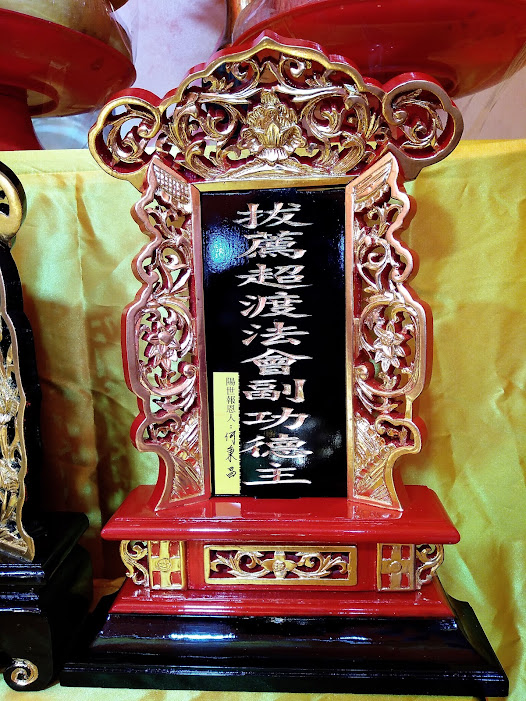 拔薦超渡法會副功德主
陽世報恩人：何東昌